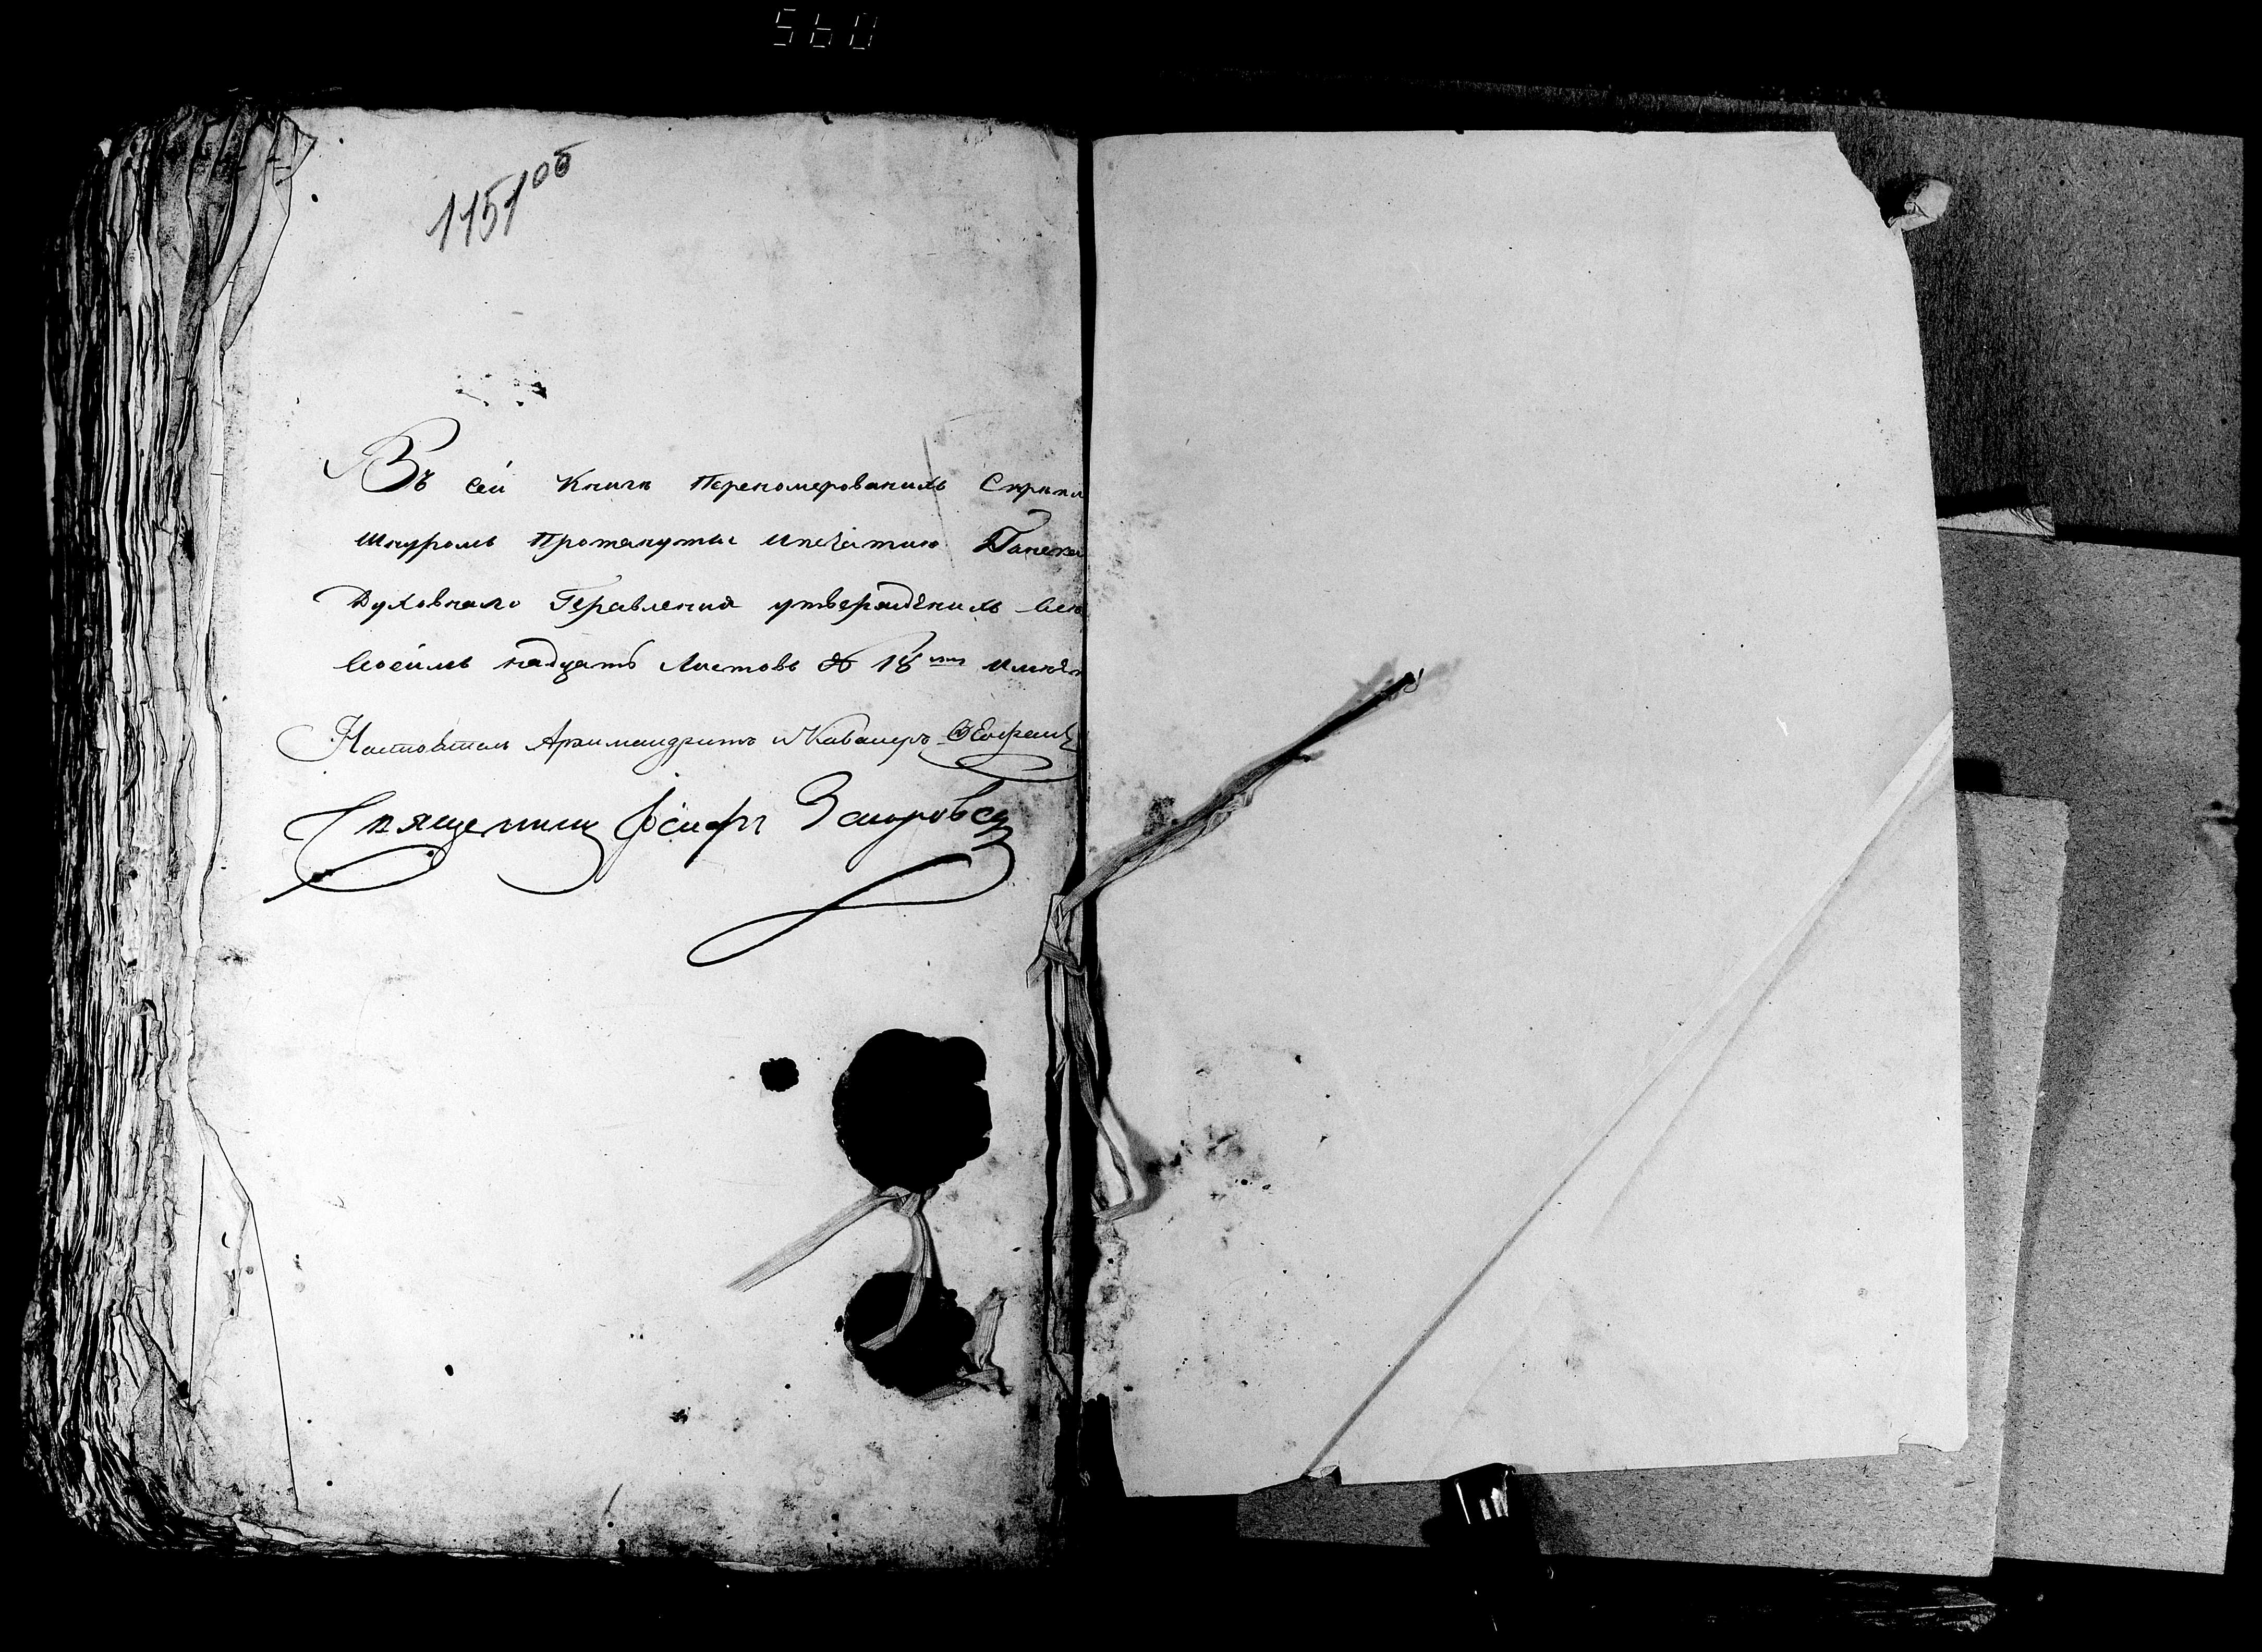 560
1151 об
Въ сей Книги Переномерованихъ Скрѣпл
Шнуромъ Протянуты ипечатию
Духовнаго Правления утверждених
Восемь надцать Листовъ № 18 имѣет
Настоятель Архимандритъ и Кавалеръ Ѳеофанъ
Священник Іосифъ